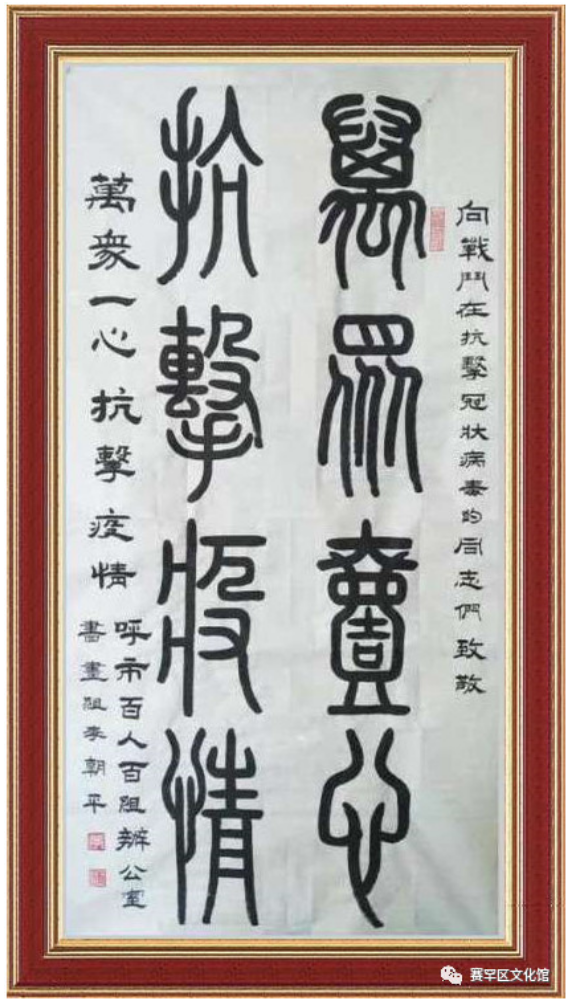 向戰鬥在抗擊冠狀病毒的同志們致敬
萬眾壹心
抗擊疫情
萬衆一心抗擊疫情
呼市百人百組辦公室
書畫組李朝平
赛罕区文化馆